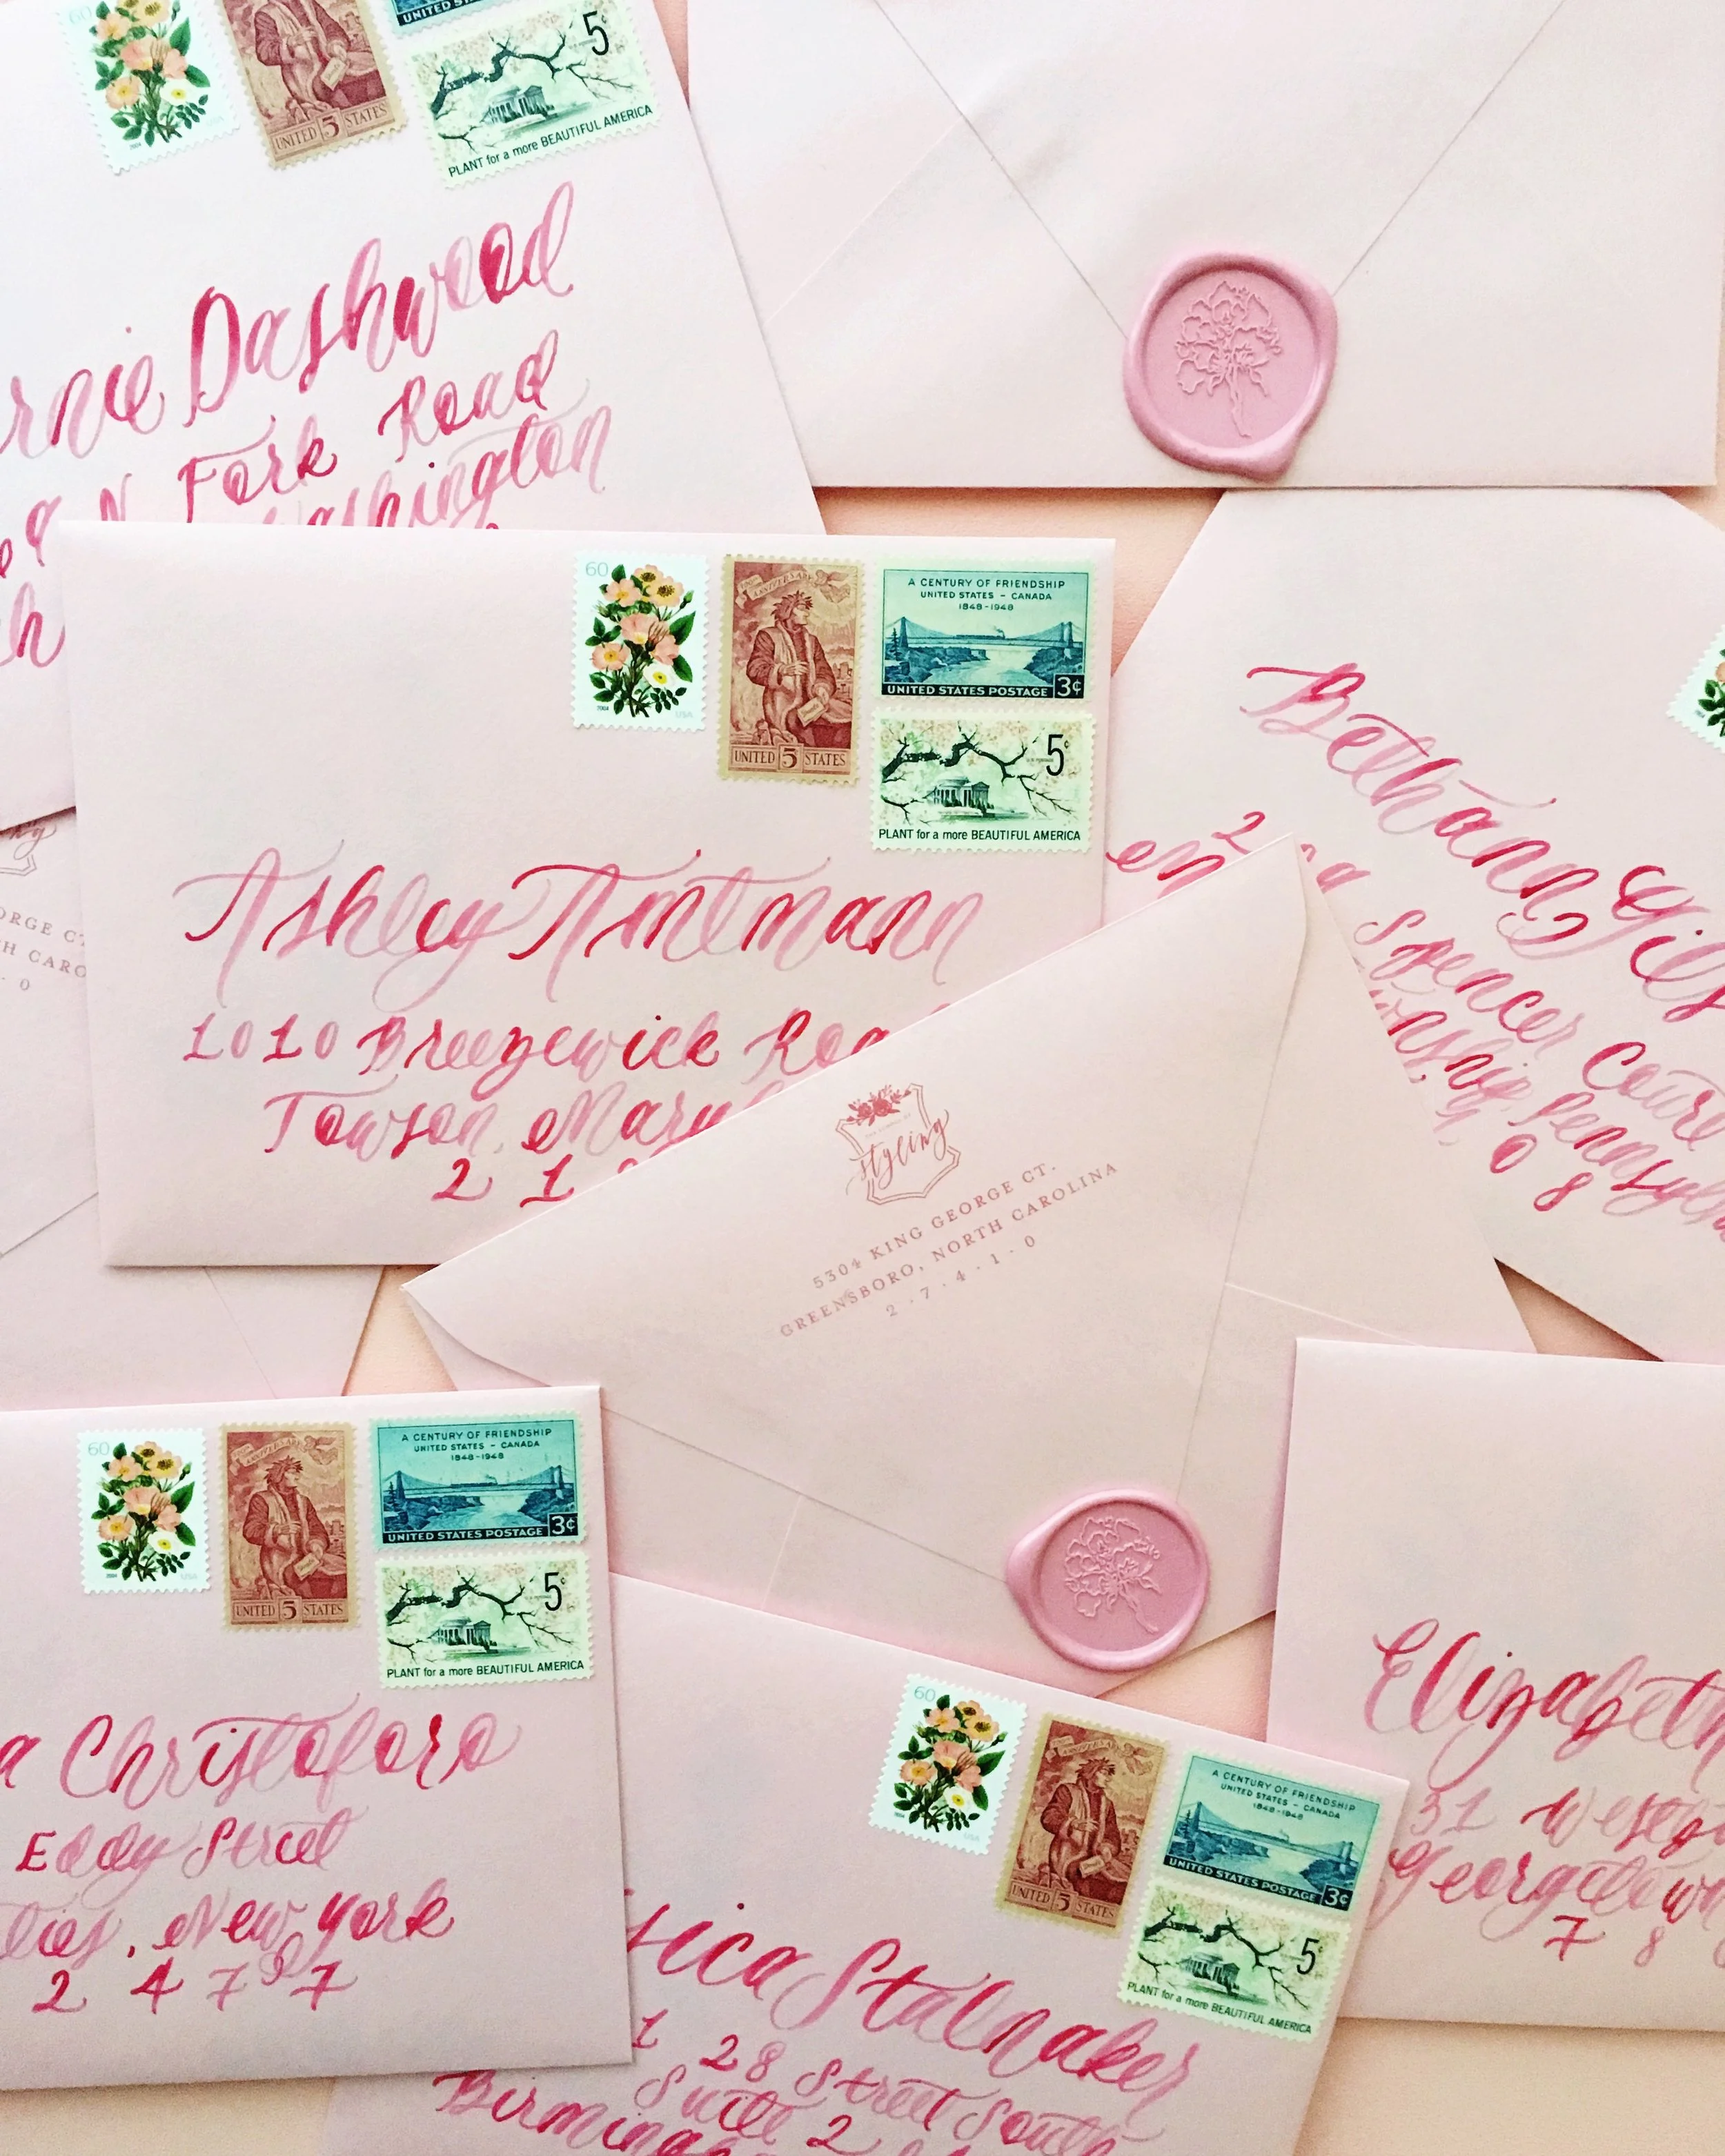 60
UNITED 5 STATES
UNITED STATES
5¢
PLANT for a more BEAUTIFUL AMERICA
Dashwood
N Fork Road
60
2004
USA
ANNIVERSARY
UNITED 5 STATES
A CENTURY OF FRIENDSHIP
UNITED STATES – CANADA
1848-1948
UNITED STATES POSTAGE 3¢
5¢
PLANT for a more BEAUTIFUL AMERICA
Ashley Amtmann
1010 Breezewick
Towson,
2 1
Bethann
Spencer Court
0
8
ORGE CT
H CARO
0
styling
5304 KING GEORGE CT.
GREENSBORO, NORTH CAROLINA
2 · 7 · 4 · 1 · 0
60
2004
USA
ANNIVERSARY
UNITED 5 STATES
A CENTURY OF FRIENDSHIP
UNITED STATES – CANADA
1848-1948
UNITED STATES POSTAGE 3¢
5¢
PLANT for a more BEAUTIFUL AMERICA
a Christoforo
Eddy Street
, New York
2 4 7 9 7
60
2004
USA
UNITED 5 STATES
A CENTURY OF FRIENDSHIP
UNITED STATES – CANADA
1848-1948
UNITED STATES POSTAGE 3¢
5¢
PLANT for a more BEAUTIFUL AMERICA
sica Stalnaker
1 28 Street South
Suite 2
Elizabeth
31
7 8